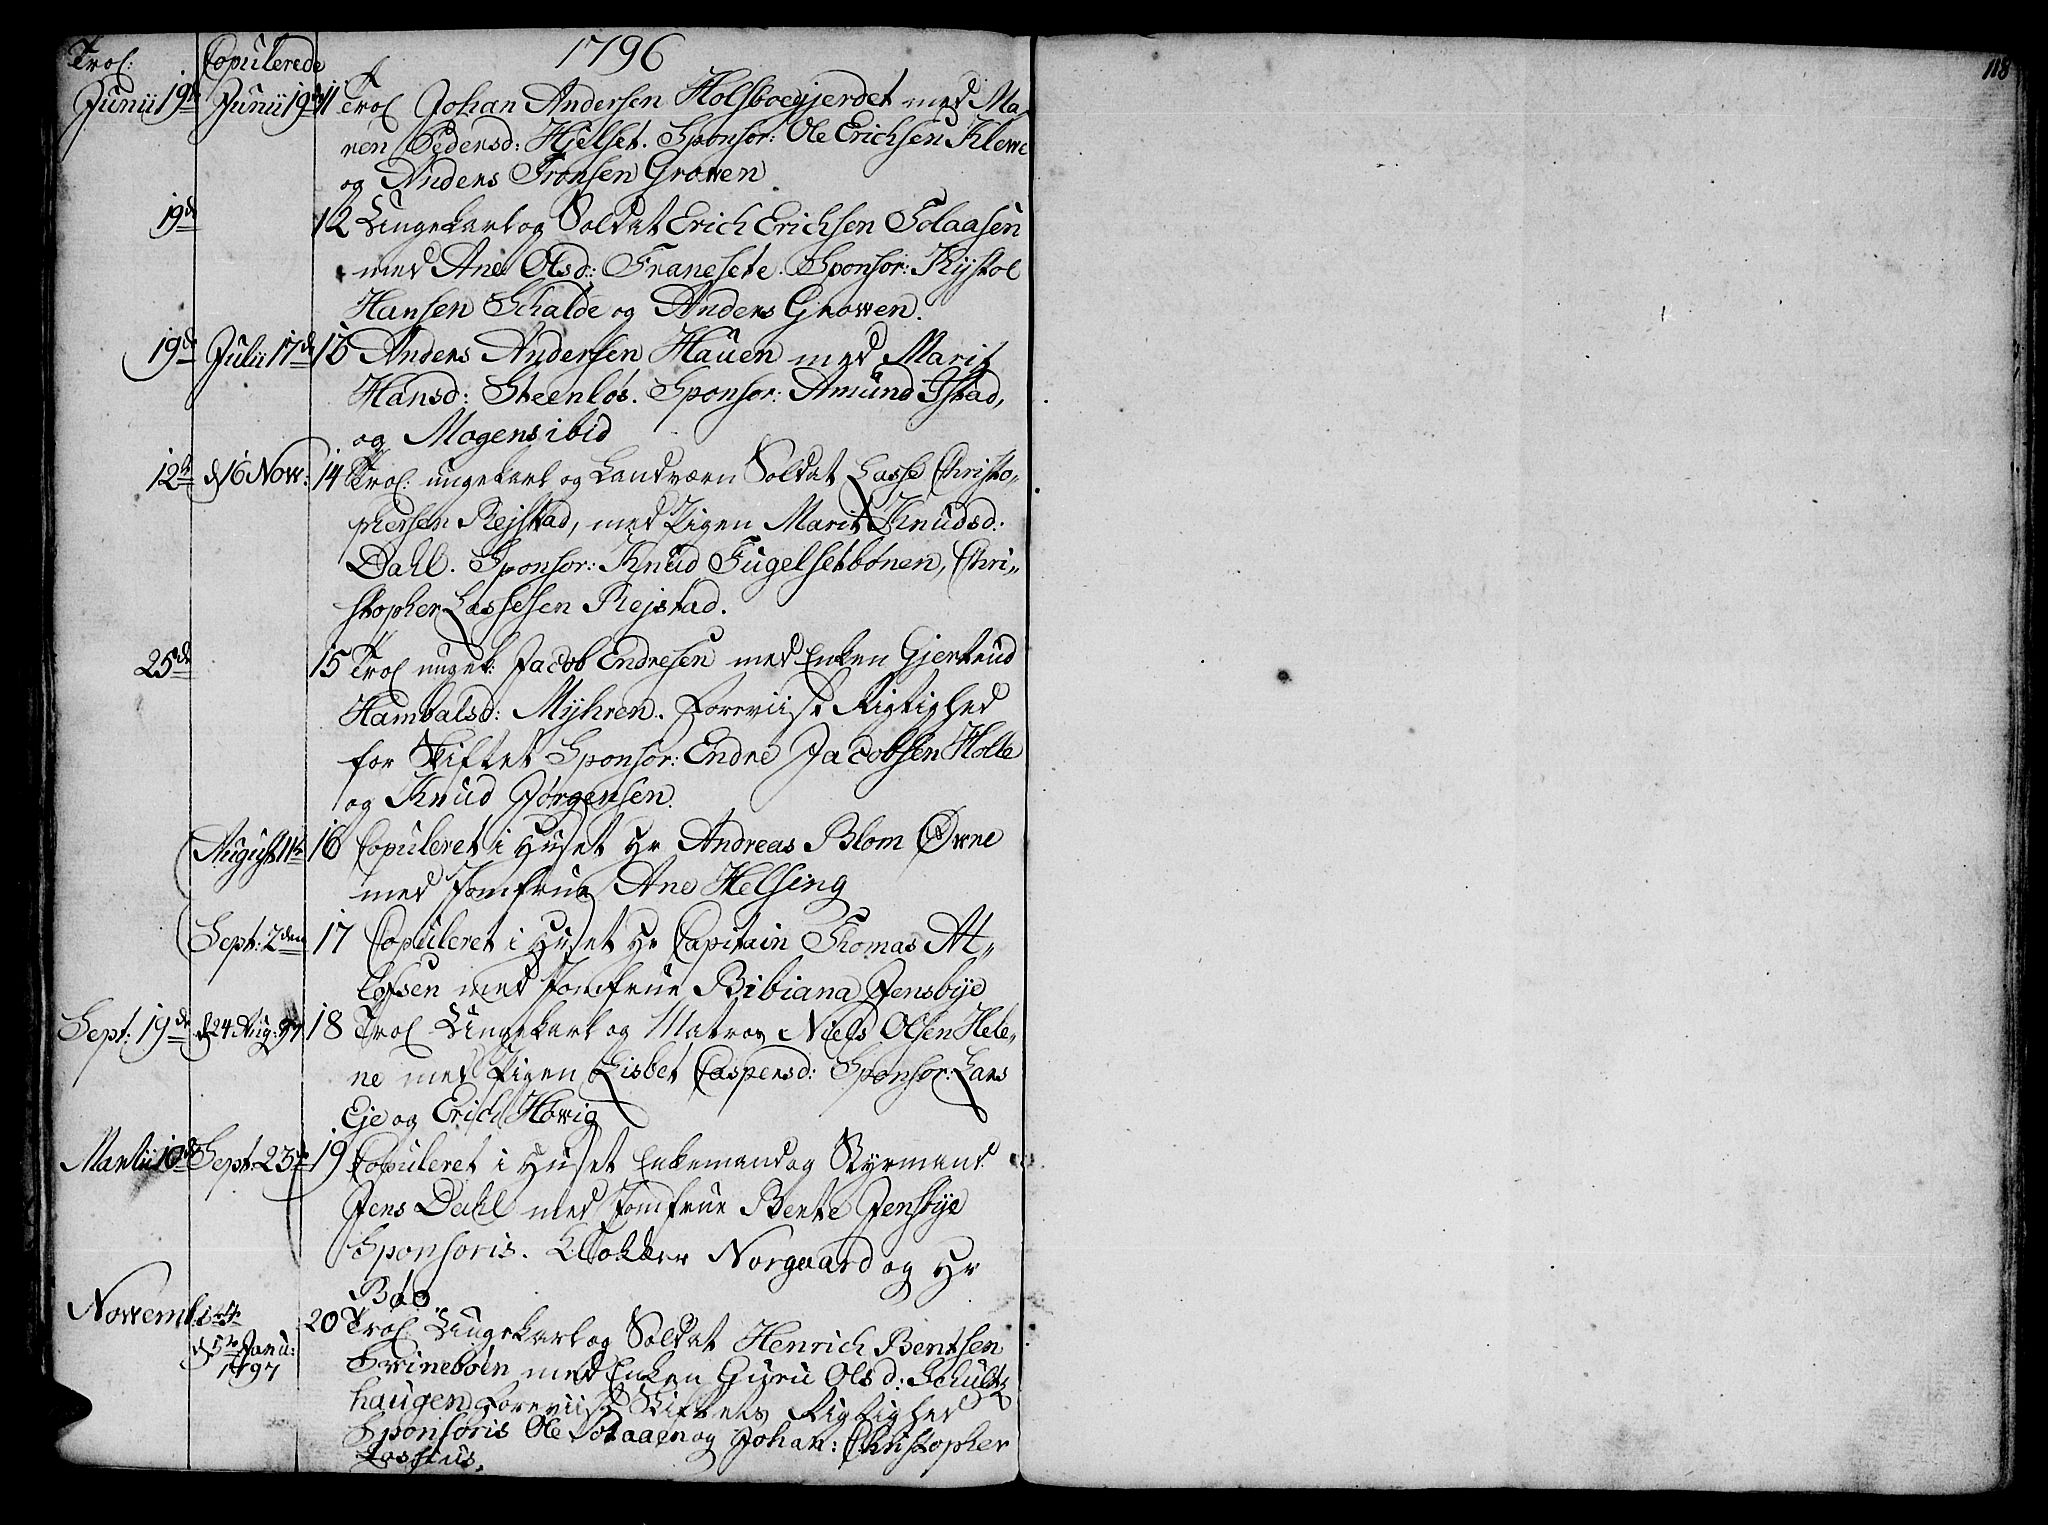 118
Trol: Copulerede 1796
Junii 19de Junii 19de 11 Trol Johan Andersen Holsboegjerdet med Ma-
ren Pedersd: Hjelset. Sponsor: Ole Erichsen Klewe
og Anders Tronsen Growen
19de 12 Ungekarl og Soldat Erich Erichsen Solaasen
med Ane Olsd: Franesete. Sponsor:
Hansen Schalde og Anders Growen.
19de Julii 17de 13 Anders Andersen Hauen med Marit
Hansd: Steenløs. Sponsor: Amund Istad,
og Mogens ibid
12te d 16 Now: 14 Trol: ungekarl og Landværn Soldat Lasse Christo-
phersen Rejstad, med Pigen Marit Knudsd:
Dahl. Sponsor: Knud Fugelsetbønen, Chri-
stopher Lassesen Rejstad.
25de 15 Trol ungek: Jacob Endresen med Enken Gjertrud
Hambalsd: Myhren. Foreviist Rigtighed
for Skiftet Sponsor: Endre Jacobsen Holle
og Knud Jørgensen.
August 11te 16 Copuleret i Huset Hr Andreas Blom Owne
med Jomfrue Ane Helsing
Sept: 2den 17 Copuleret i Huset Hr Capitain Thomas At-
lefsen med Jomfrue Bibiana Jensbye
Sept: 19de d 24 Aug: 97 18 Trol Ungekarl og Matros Niels Olsen Hele-
ne med Pigen Lisbet Caspersd: Sponsor: Lars
Eje og Erich Howig
Martii 10de Sept: 23de 19 Copuleret i Huset Enkemand og Styrmand
Jens Dahl med Jomfrue Bente Jensbye
Sponsoris. Klokker Norgaard og Hr
Bøe
Novembr 20 Trol: Ungekarl og Soldat Henrich Bentsen
d 5te Janu: 1797 Svinebøen med Enken Guru Olsd: Schult-
haugen Foreviist Skiftets Rigtighed
Sponsoris Ole Solaaen og Johan: Christopher
Lossius.